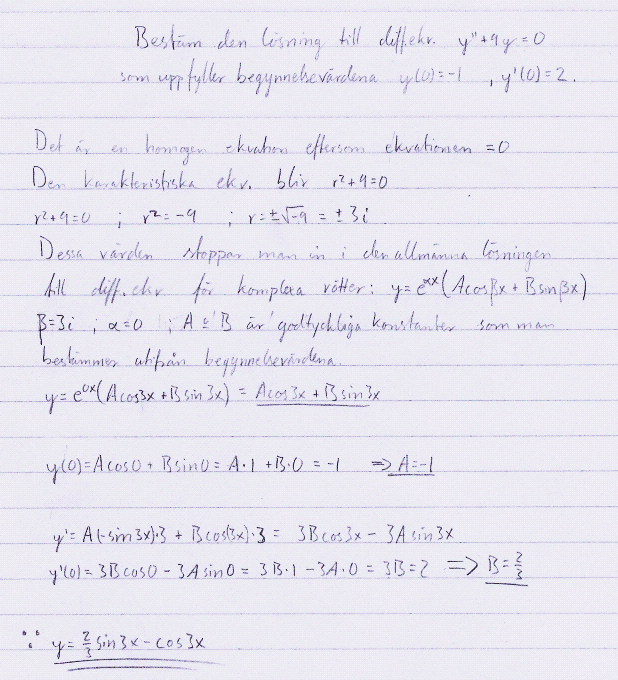 Bestäm den lösning till diff.ekv. y''+9y=0
som uppfyller begynnelsevärdena y(0)=-1 , y'(0)=2.
Det är en homogen ekvation eftersom ekvationen =0
Den karakteristiska ekv. blir r²+9=0
r²+9=0 ; r²=-9 ; r=±√-9 = ±3i
Dessa värden stoppar man in i den allmänna lösningen
till diff.ekv för komplexa rötter: y=e^αx(Acosβx + Bsinβx)
β=3i ; α=0 ; A & B är godtyckliga konstanter som man
bestämmer utifrån begynnelsevärdena.
y=e^0x(Acos3x+Bsin3x) = Acos3x + Bsin3x
y(0)=Acos0+Bsin0=A·1+B·0=-1 => A=-1
y'=A(-sin3x)·3 + Bcos(3x)·3 = 3Bcos3x - 3Asin3x
y'(0)=3Bcos0-3Asin0=3B·1-3A·0=3B=2 => B=2/3
∵ y=2/3 sin3x-cos3x